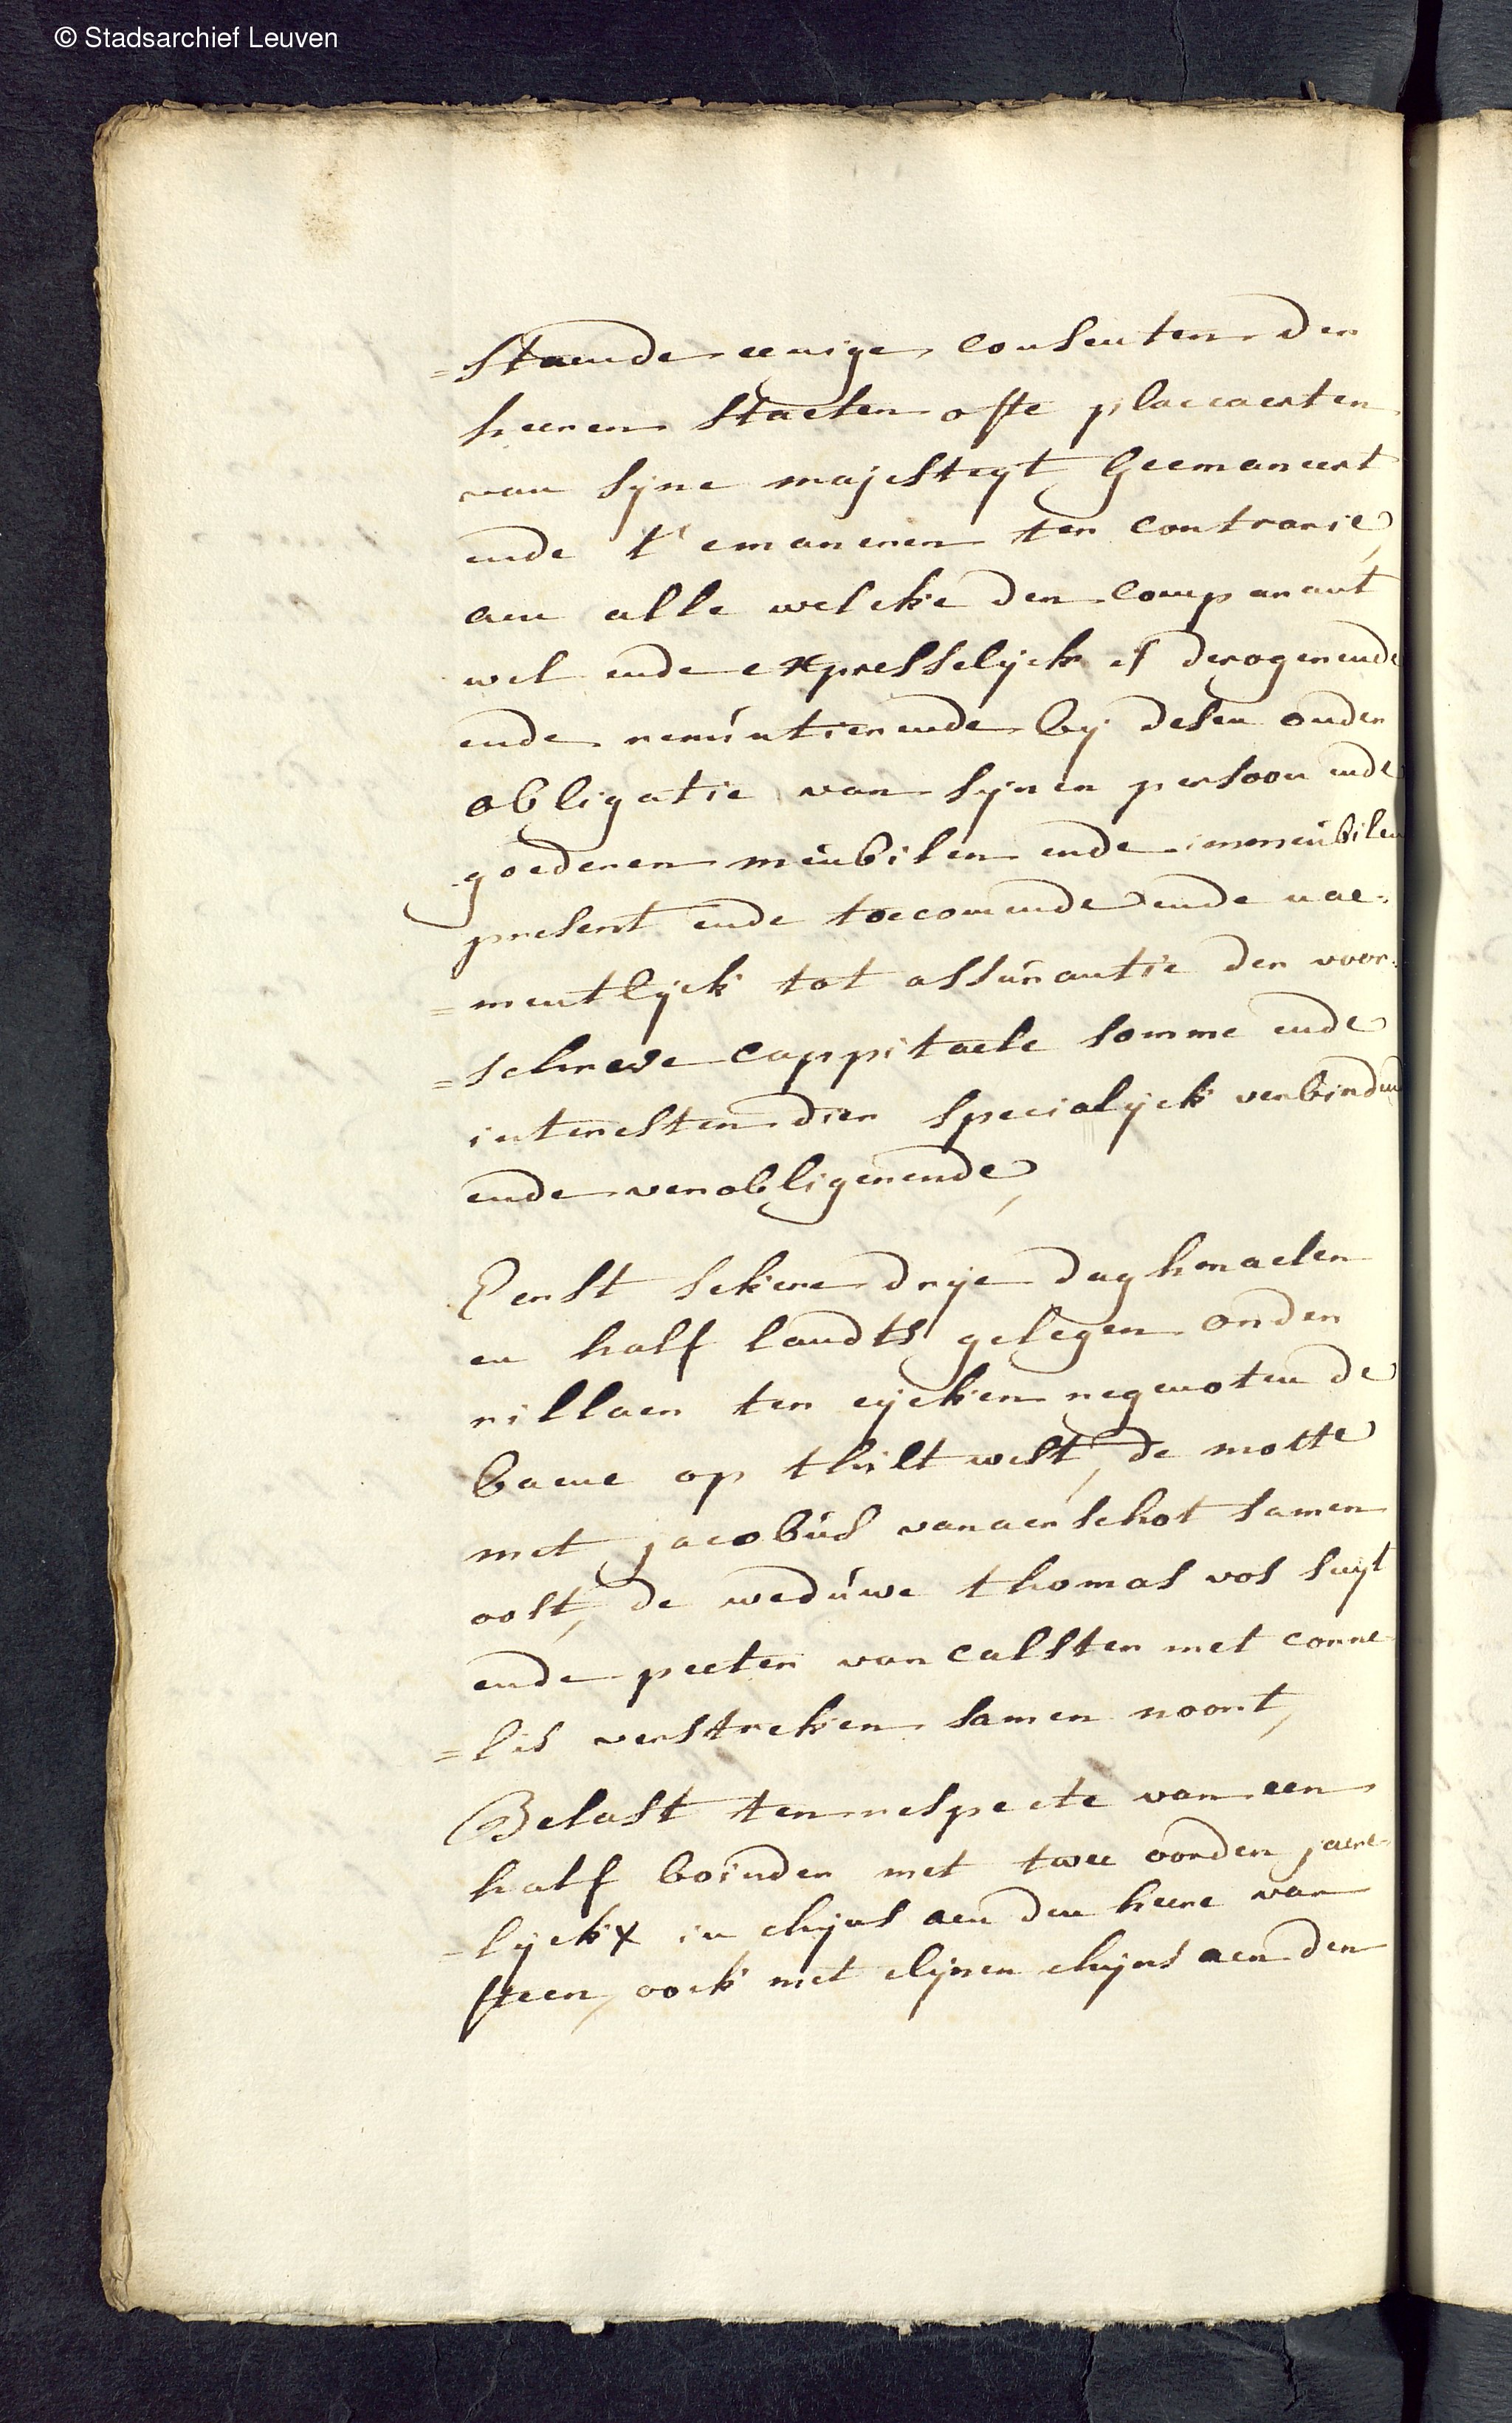 © Stadsarchief Leuven
=staende eenige consenten der
heeren staeten ofte placcaerten
van syne majesteyt geemaneert
ende t'emaneren ter contrarie,
aen alle welcke den comparant
wel ende expresselyck is derogerende
ende renúntierende by desen onder
obligatie van synen persoon ende
goederen meúbilen ende immeúbilen
present ende toecomende ende nae=
=mentlyck tot assúrantie der voor=
=schreve cappitaele somme ende
interesten dier specialyck verbinden
ende verobligerende,
Eerst sekere drye daghmaelen
en half landts gelegen onder
rillaer ter eycken regenoten de
baene op thilt west, de motte
met jacobús van aerschot samen
oost, de wedúwe thomas vos suyt
ende peeter van calster met corne
=lis verstreken samen noort,
Belast ten respecte van een
half boinder met twee oorden jaere
-lyckx in chyns aen den heere van
steen, oock met elynen chyns aen den